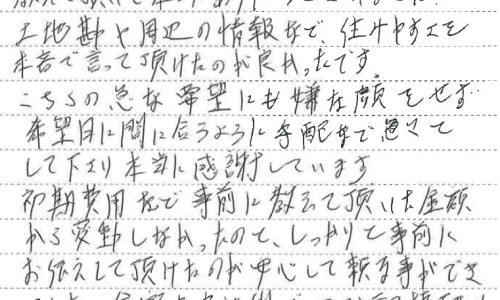 土地勘や周辺の情報などで、住みやすくを
本音で言って頂けたのが良かったです。
こちらの急な希望にも嫌な顔をせず
希望日に間に合うように手配など急いで
して下さり本当に感謝しています
初期費用などで事前に教えて頂いた金額
から変動しなかったので、しっかりと事前に
お伝えして頂けたのが安心して頼る事ができ